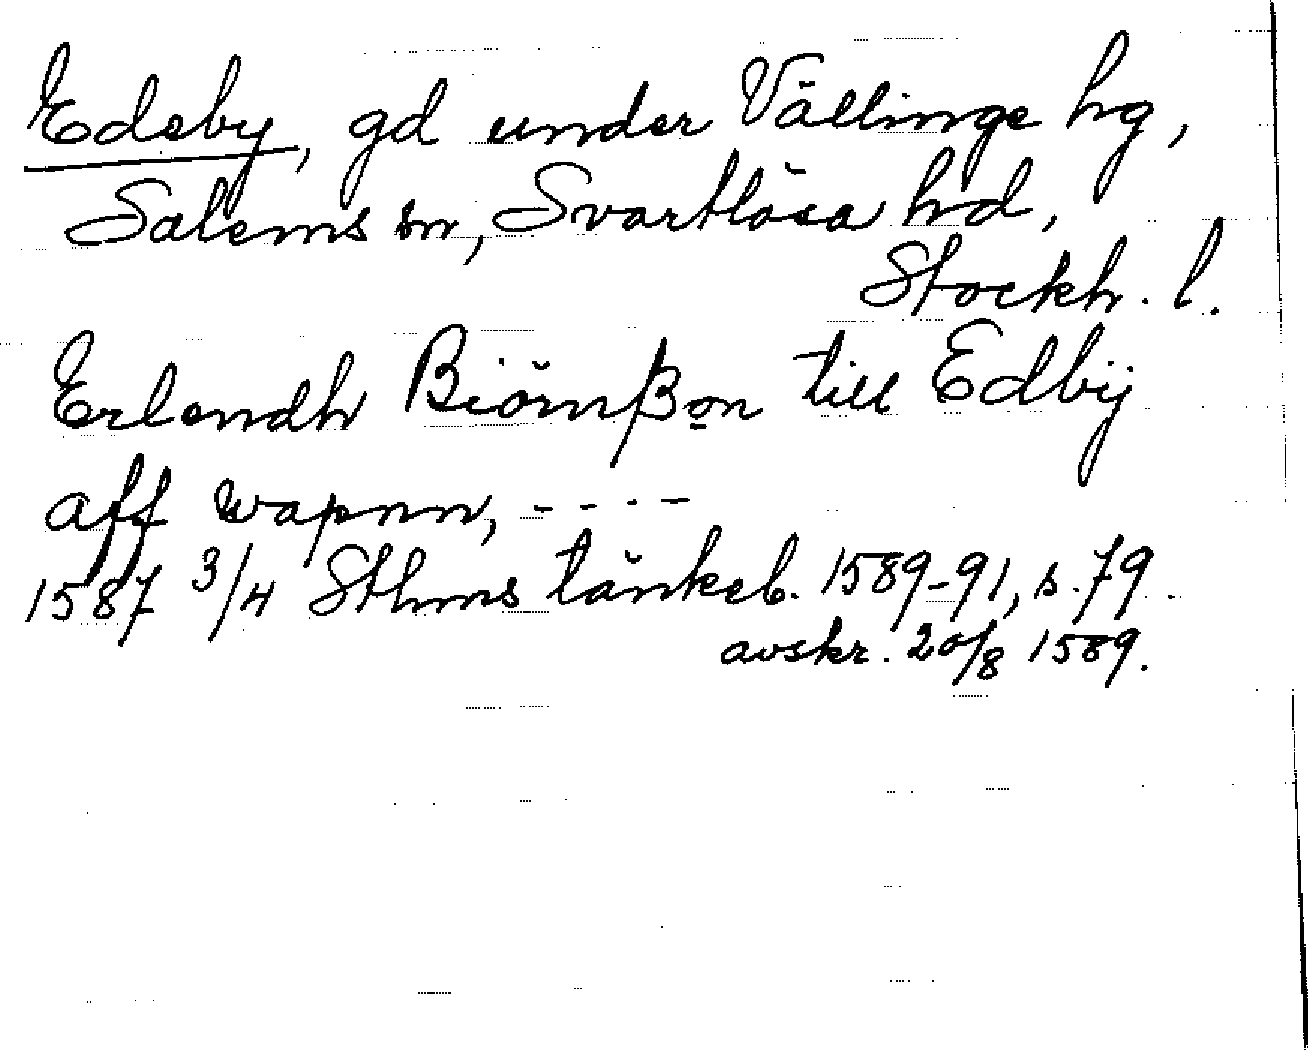 Edeby, gd under Vällinge hg,
Salems sn, Svartlösa hd,
Stockh. l.
Erlendh Biörnßon till Edbÿ
aff wapnn, - - - -
1587 3/4 Sthms tänkeb. 1589-91, s. 79
avskr. 20/8 1589.